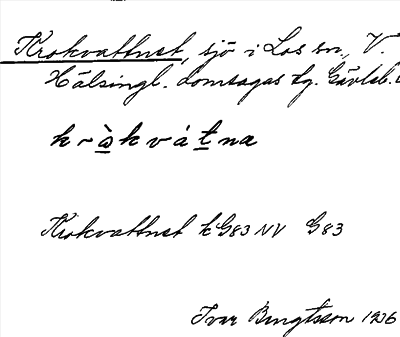 Krokvattnet, sjö i Los sn, V.
Hälsingl. domsagas tg. Gävleb. l
k r ò̲ k v á t̲ n æ
Krokvattnet k G83 NV G83
Ivar Bengtsson 1936